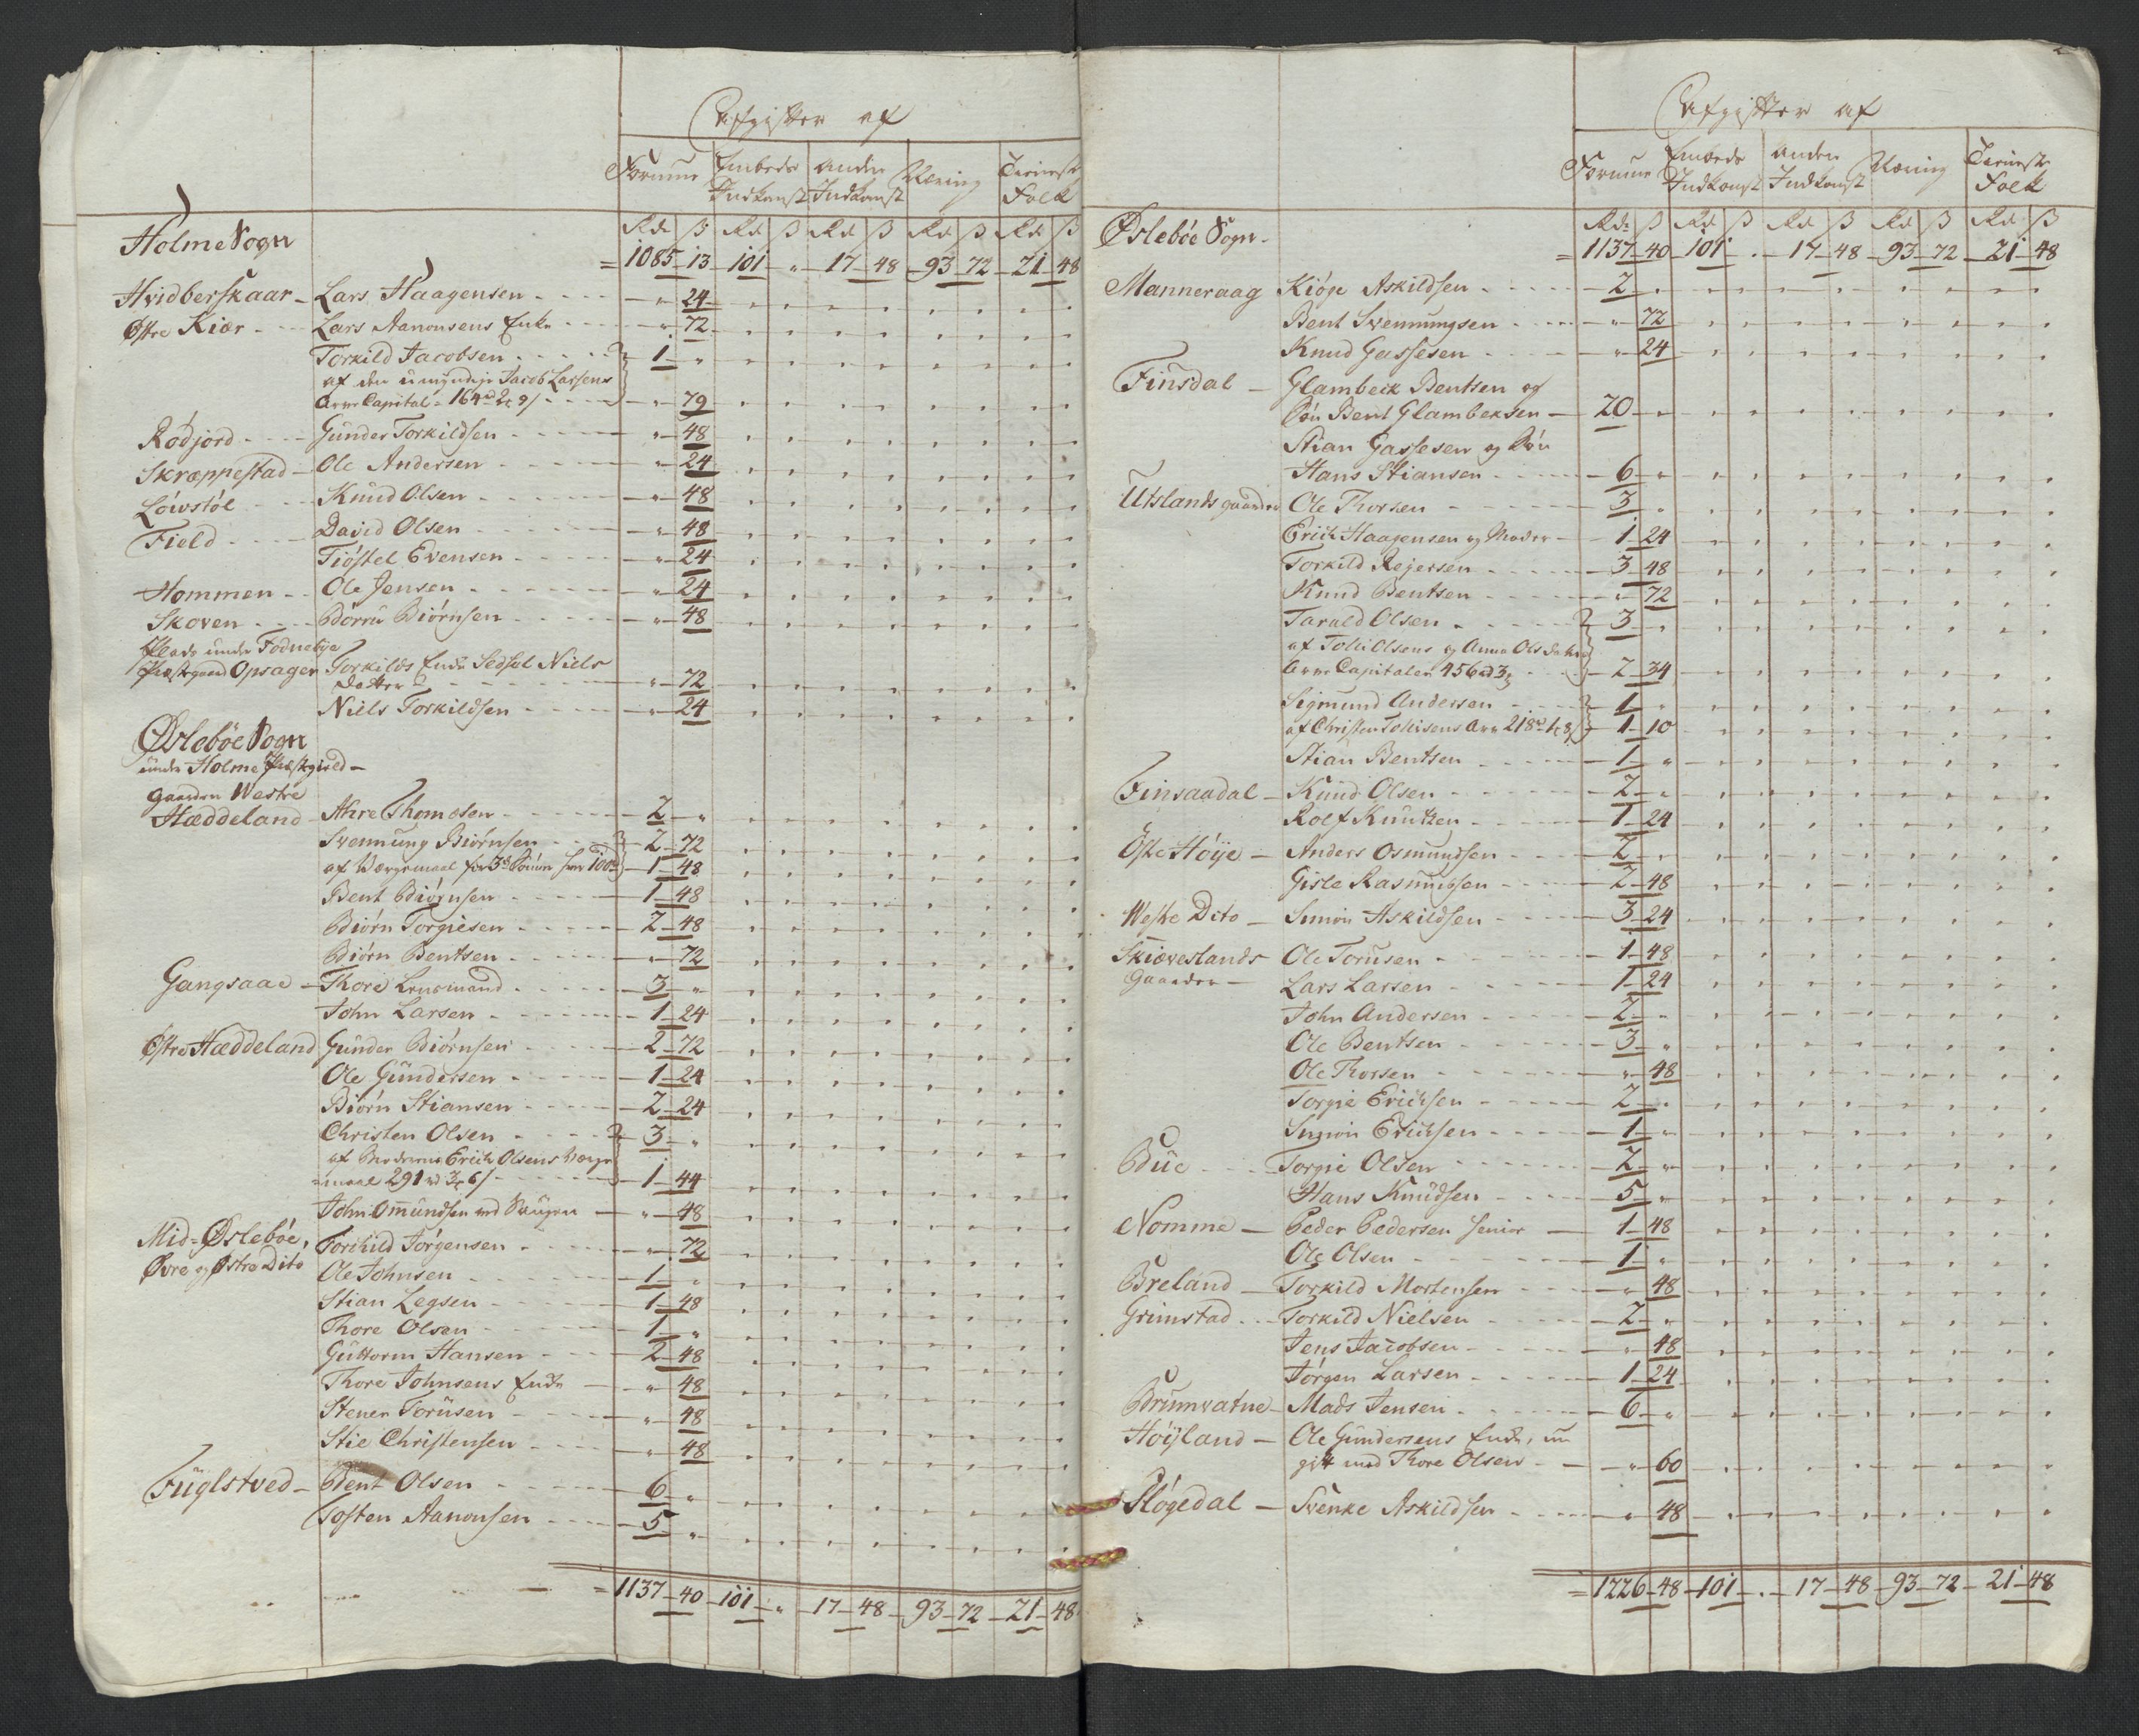 Afgifter af
Formue Embeds Indkomst Anden Indkomst Næring Tieniste Folk
Holme Sogn Rd ß Rd ß Rd ß Rd ß Rd ß
= 1085 13 101 " 17 48 93 72 21 48
Hvidberskaar Lars Haagensen " 24
Østre Kiær Lars Aanonsens Enke " 72
Torkild Jacobsen 1 "
af den umyndige Jacob Larsens
Arve Capital 164 rd 2 9 ß " 79
Rødjord Gunder Torkildsen " 48
Skræppestad Ole Andersen " 24
Løwstøl Knud Olsen " 48
Field David Olsen " 48
Tiøstel Evensen " 24
Hommen Ole Jensen " 24
Skoven Børru Biørnsen " 48
Plads under Fodnebye
Præstegaard Opsager Torkilds Enke Sedsel Niels
Datter " 72
Niels Torkildsen " 24
Øslebøe Sogn
under Holme Præstegield
Gaarden Westre
Hæddeland Aere Thomesen 2 "
Svennung Biørnsen 2 72
af Wærgemaal for 3de hver 100 rd 1 48
Bent Biørnsen 1 48
Biørn Torgiesen 2 48
Biørn Bentsen " 72
Gangsaae Thore Lensmand 3 "
John Larsen 1 24
Østre Hæddeland Gunder Biørnsen 2 72
Ole Gundersen 1 24
Biørn Stiansen 2 24
Christen Olsen 3 "
af Broderens Erich Olsens Værge
maal 291 rd 3 6 ß 1 44
John Omundsen ved " 48
Mid-Øslebøe, Torkild Jørgensen " 72
Øvre og Østre Dito Ole Johnsen 1 "
Stian Legsen 1 48
Thore Olsen 1 "
Guttorm Hansen 2 48
Thore Johnsens Enke " 48
Stener Torusen " 48
Stie Christensen " 48
Fuglstved Bent Olsen 6 "
Tosten Aanonsen 5 "
= 1137 40 101 " 17 48 93 72 21 48
Afgifter af
Formue Embeds Indkomst Anden Indkomst Næring Tieniste Folk
Øslebøe Sogn Rd ß Rd ß Rd ß Rd ß Rd ß
= 1137 40 101 " 17 48 93 72 21 48
Manneraag Kiøge Askildsen 2 "
Bent Svennungsen " 72
Knud Gassesen " 24
Finsdal Glambeck Bentsen og
Søn Bent Glambeksen 20 "
Stian Gassesen og Søn
Hans Stiansen 6 "
Utslands gaarder Ole Thorsen 3 "
Erich Haagensen og Moder 1 24
Torkild Rejersen 3 48
Knud Bentsen " 72
Tarald Olsen 3 "
af Tollii Olsens og Anna Olsdatters
Arve Capitaler 456 rd 3 2 34
Sigmund Andersen 1 "
af Christen Tollisens Arv 218 rd 1 8 ß 1 10
Stian Bentsen 1 "
Finsaadal Knud Olsen 2 "
Rolf Knutzen 1 24
Østre Høije Anders Osmundsen 2 "
Gisle Rasmussen 2 48
Westre Dito Simon Askildsen 3 24
Skiæveslands Ole Torusen 1 48
Gaarder Lars Larsen 1 24
John Andersen 2 "
Ole Bentsen 3 "
Ole Thorsen " 48
Torgie Erichsen 2 "
Simon Erichsen 1 "
Bue Torgie Olsen 2 "
Hans Knudsen 5 "
Nomme Peder Pedersen senior 1 48
Ole Olsen 1 "
Breland Torkild Mortensen " 48
Grimstad Torkild Nielsen 2 "
Jens Jacobsen " 48
Jørgen Larsen 1 24
Brunvatne Mads Jensen 6 "
Høyland Ole Gundersens Enke, nu
gift med Thore Olsen " 60
Sløgedal Svenke Askildsen " 48
= 1226 48 101 " 17 48 93 72 21 48